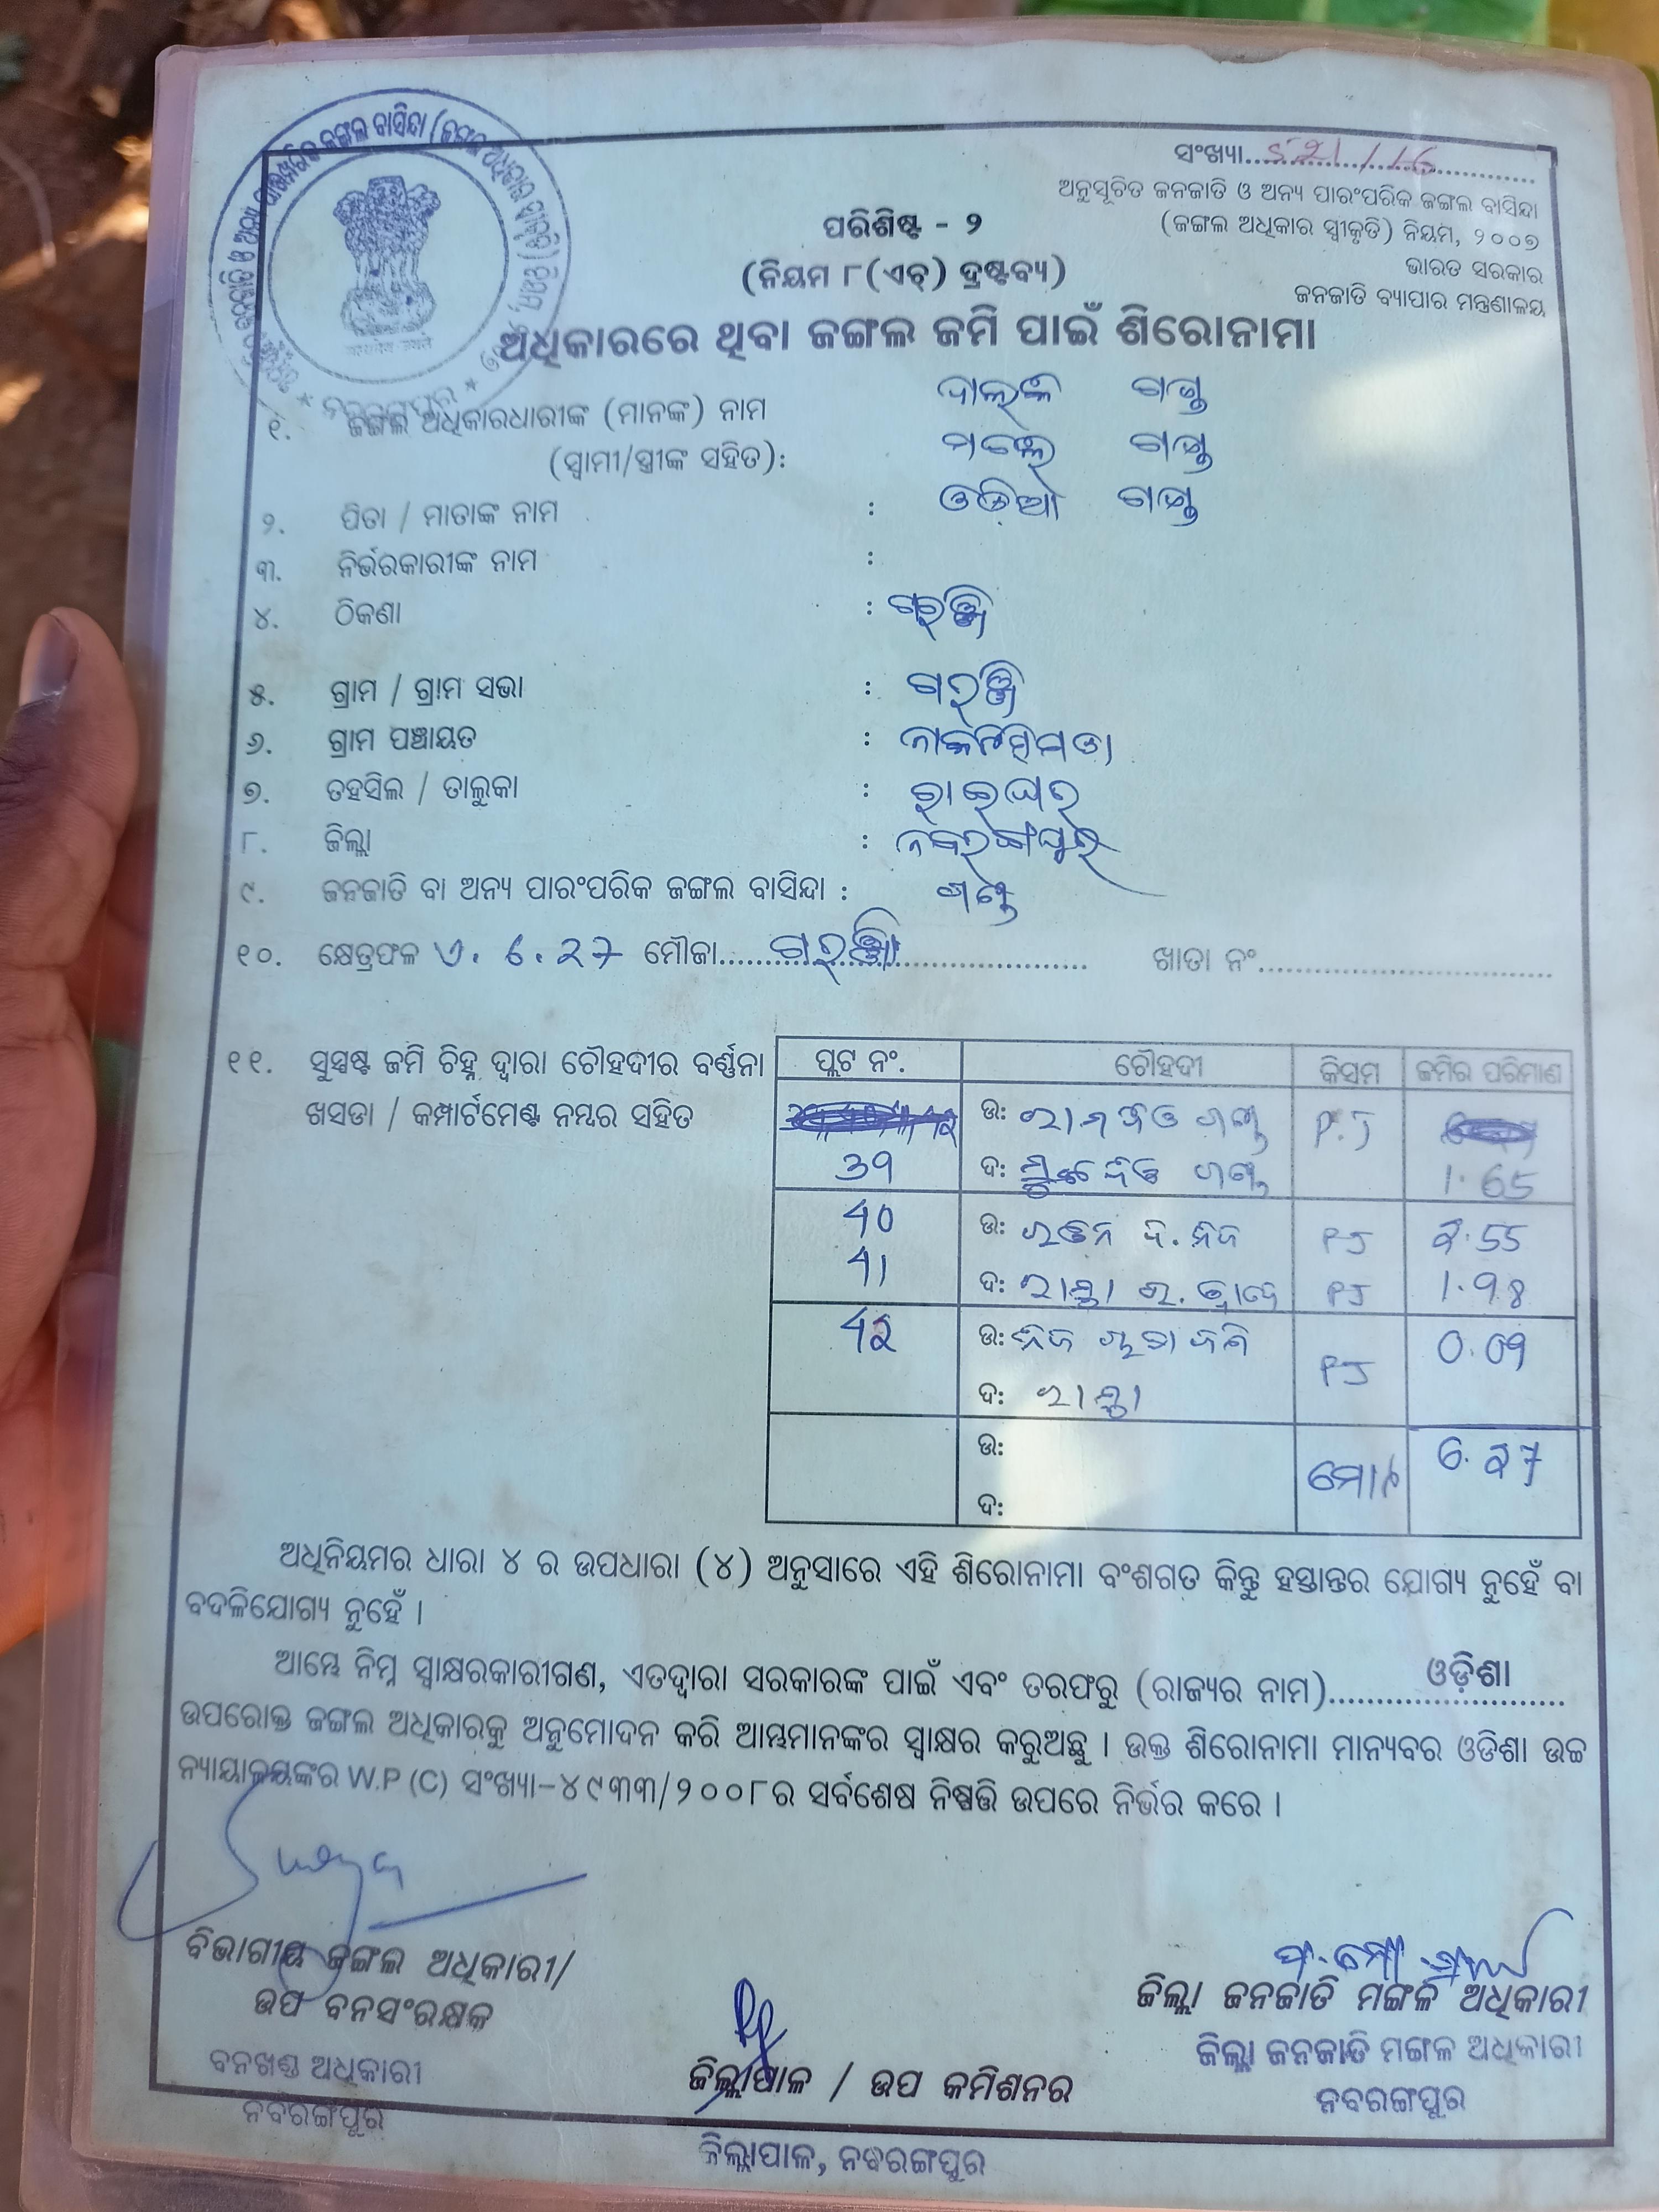 ସଂଖ୍ୟା....521/16....
ଅନୁସୂଚିତ ଜନଜାତି ଓ ଅନ୍ୟ ପାରଂପରିକ ଜଙ୍ଗଲ ବାସିନ୍ଦା
(ଜଙ୍ଗଲ ଅଧିକାର ସ୍ୱୀକୃତି) ନିୟମ, ୨୦୦୭
ଭାରତ ସରକାର
ଜନଜାତି ବ୍ୟାପାର ମନ୍ତ୍ରଣାଳୟ
ପରିଶିଷ୍ଟ - ୨
(ନିୟମ ୮(ଏଚ୍) ଦ୍ରଷ୍ଟବ୍ୟ)
ଅଧିକାରରେ ଥିବା ଜଙ୍ଗଲ ଜମି ପାଇଁ ଶିରୋନାମା
୧. ଜଙ୍ଗଲ ଅଧିକାରଧାରୀଙ୍କ (ମାନଙ୍କ) ନାମ
(ସ୍ୱାମୀ/ସ୍ତ୍ରୀଙ୍କ ସହିତ):
୨. ପିତା / ମାତାଙ୍କ ନାମ : ଓଡିଆ ଗଣ୍ଡ
୩. ନିର୍ଭରକାରୀଙ୍କ ନାମ :
୪. ଠିକଣା : ଗରଞ୍ଜି
୫. ଗ୍ରାମ / ଗ୍ରାମ ସଭା : ଗରଞ୍ଜି
୬. ଗ୍ରାମ ପଞ୍ଚାୟତ :
୭. ତହସିଲ / ତାଲୁକା : ରାଇଘର
୮. ଜିଲ୍ଲା : ନବରଙ୍ଗପୁର
୯. ଜନଜାତି ବା ଅନ୍ୟ ପାରଂପରିକ ଜଙ୍ଗଲ ବାସିନ୍ଦା : ଗଣ୍ଡ
୧୦. କ୍ଷେତ୍ରଫଳ ଏ. 6.27 ମୌଜା....ଗରଞ୍ଜି.... ଖାତା ନଂ....
୧୧. ସୁସ୍ପଷ୍ଟ ଜମି ଚିହ୍ନ ଦ୍ୱାରା ଚୌହଦୀର ବର୍ଣ୍ଣନା
ଖସଡା / କମ୍ପାର୍ଟମେଣ୍ଟ ନମ୍ବର ସହିତ
ପ୍ଲଟ ନଂ. ଚୌହଦୀ କିସମ ଜମିର ପରିମାଣ
ଉଃ P.J
39 ଦଃ 1.65
40 ଉଃ PJ 2.55
41 ଦଃ ରାସ୍ତା PJ 1.98
42 ଉଃ PJ 0.09
ଦଃ ରାସ୍ତା
ଉଃ ମୋଟ 6.27
ଦଃ
ଅଧିନିୟମର ଧାରା ୪ ର ଉପଧାରା (୪) ଅନୁସାରେ ଏହି ଶିରୋନାମା ବଂଶଗତ କିନ୍ତୁ ହସ୍ତାନ୍ତର ଯୋଗ୍ୟ ନୁହେଁ ବା
ବଦଳିଯୋଗ୍ୟ ନୁହେଁ ।
ଆମ୍ଭେ ନିମ୍ନ ସ୍ୱାକ୍ଷରକାରୀଗଣ, ଏତଦ୍ଦ୍ୱାରା ସରକାରଙ୍କ ପାଇଁ ଏବଂ ତରଫରୁ (ରାଜ୍ୟର ନାମ)....ଓଡ଼ିଶା....
ଉପରୋକ୍ତ ଜଙ୍ଗଲ ଅଧିକାରକୁ ଅନୁମୋଦନ କରି ଆମ୍ଭମାନଙ୍କର ସ୍ୱାକ୍ଷର କରୁଅଛୁ । ଉକ୍ତ ଶିରୋନାମା ମାନ୍ୟବର ଓଡିଶା ଉଚ୍ଚ
ନ୍ୟାୟାଳୟଙ୍କର W.P (C) ସଂଖ୍ୟା-୪୯୩୩/୨୦୦୮ର ସର୍ବଶେଷ ନିଷ୍ପତ୍ତି ଉପରେ ନିର୍ଭର କରେ ।
ବିଭାଗୀୟ ଜଙ୍ଗଲ ଅଧିକାରୀ/
ଉପ ବନସଂରକ୍ଷକ
ବନଖଣ୍ଡ ଅଧିକାରୀ
ନବରଙ୍ଗପୁର
ଜିଲ୍ଲାପାଳ / ଉପ କମିଶନର
ଜିଲ୍ଲାପାଳ, ନବରଙ୍ଗପୁର
ଜିଲ୍ଲା ଜନଜାତି ମଙ୍ଗଳ ଅଧିକାରୀ
ଜିଲ୍ଲା ଜନଜାତି ମଙ୍ଗଳ ଅଧିକାରୀ
ନବରଙ୍ଗପୁର